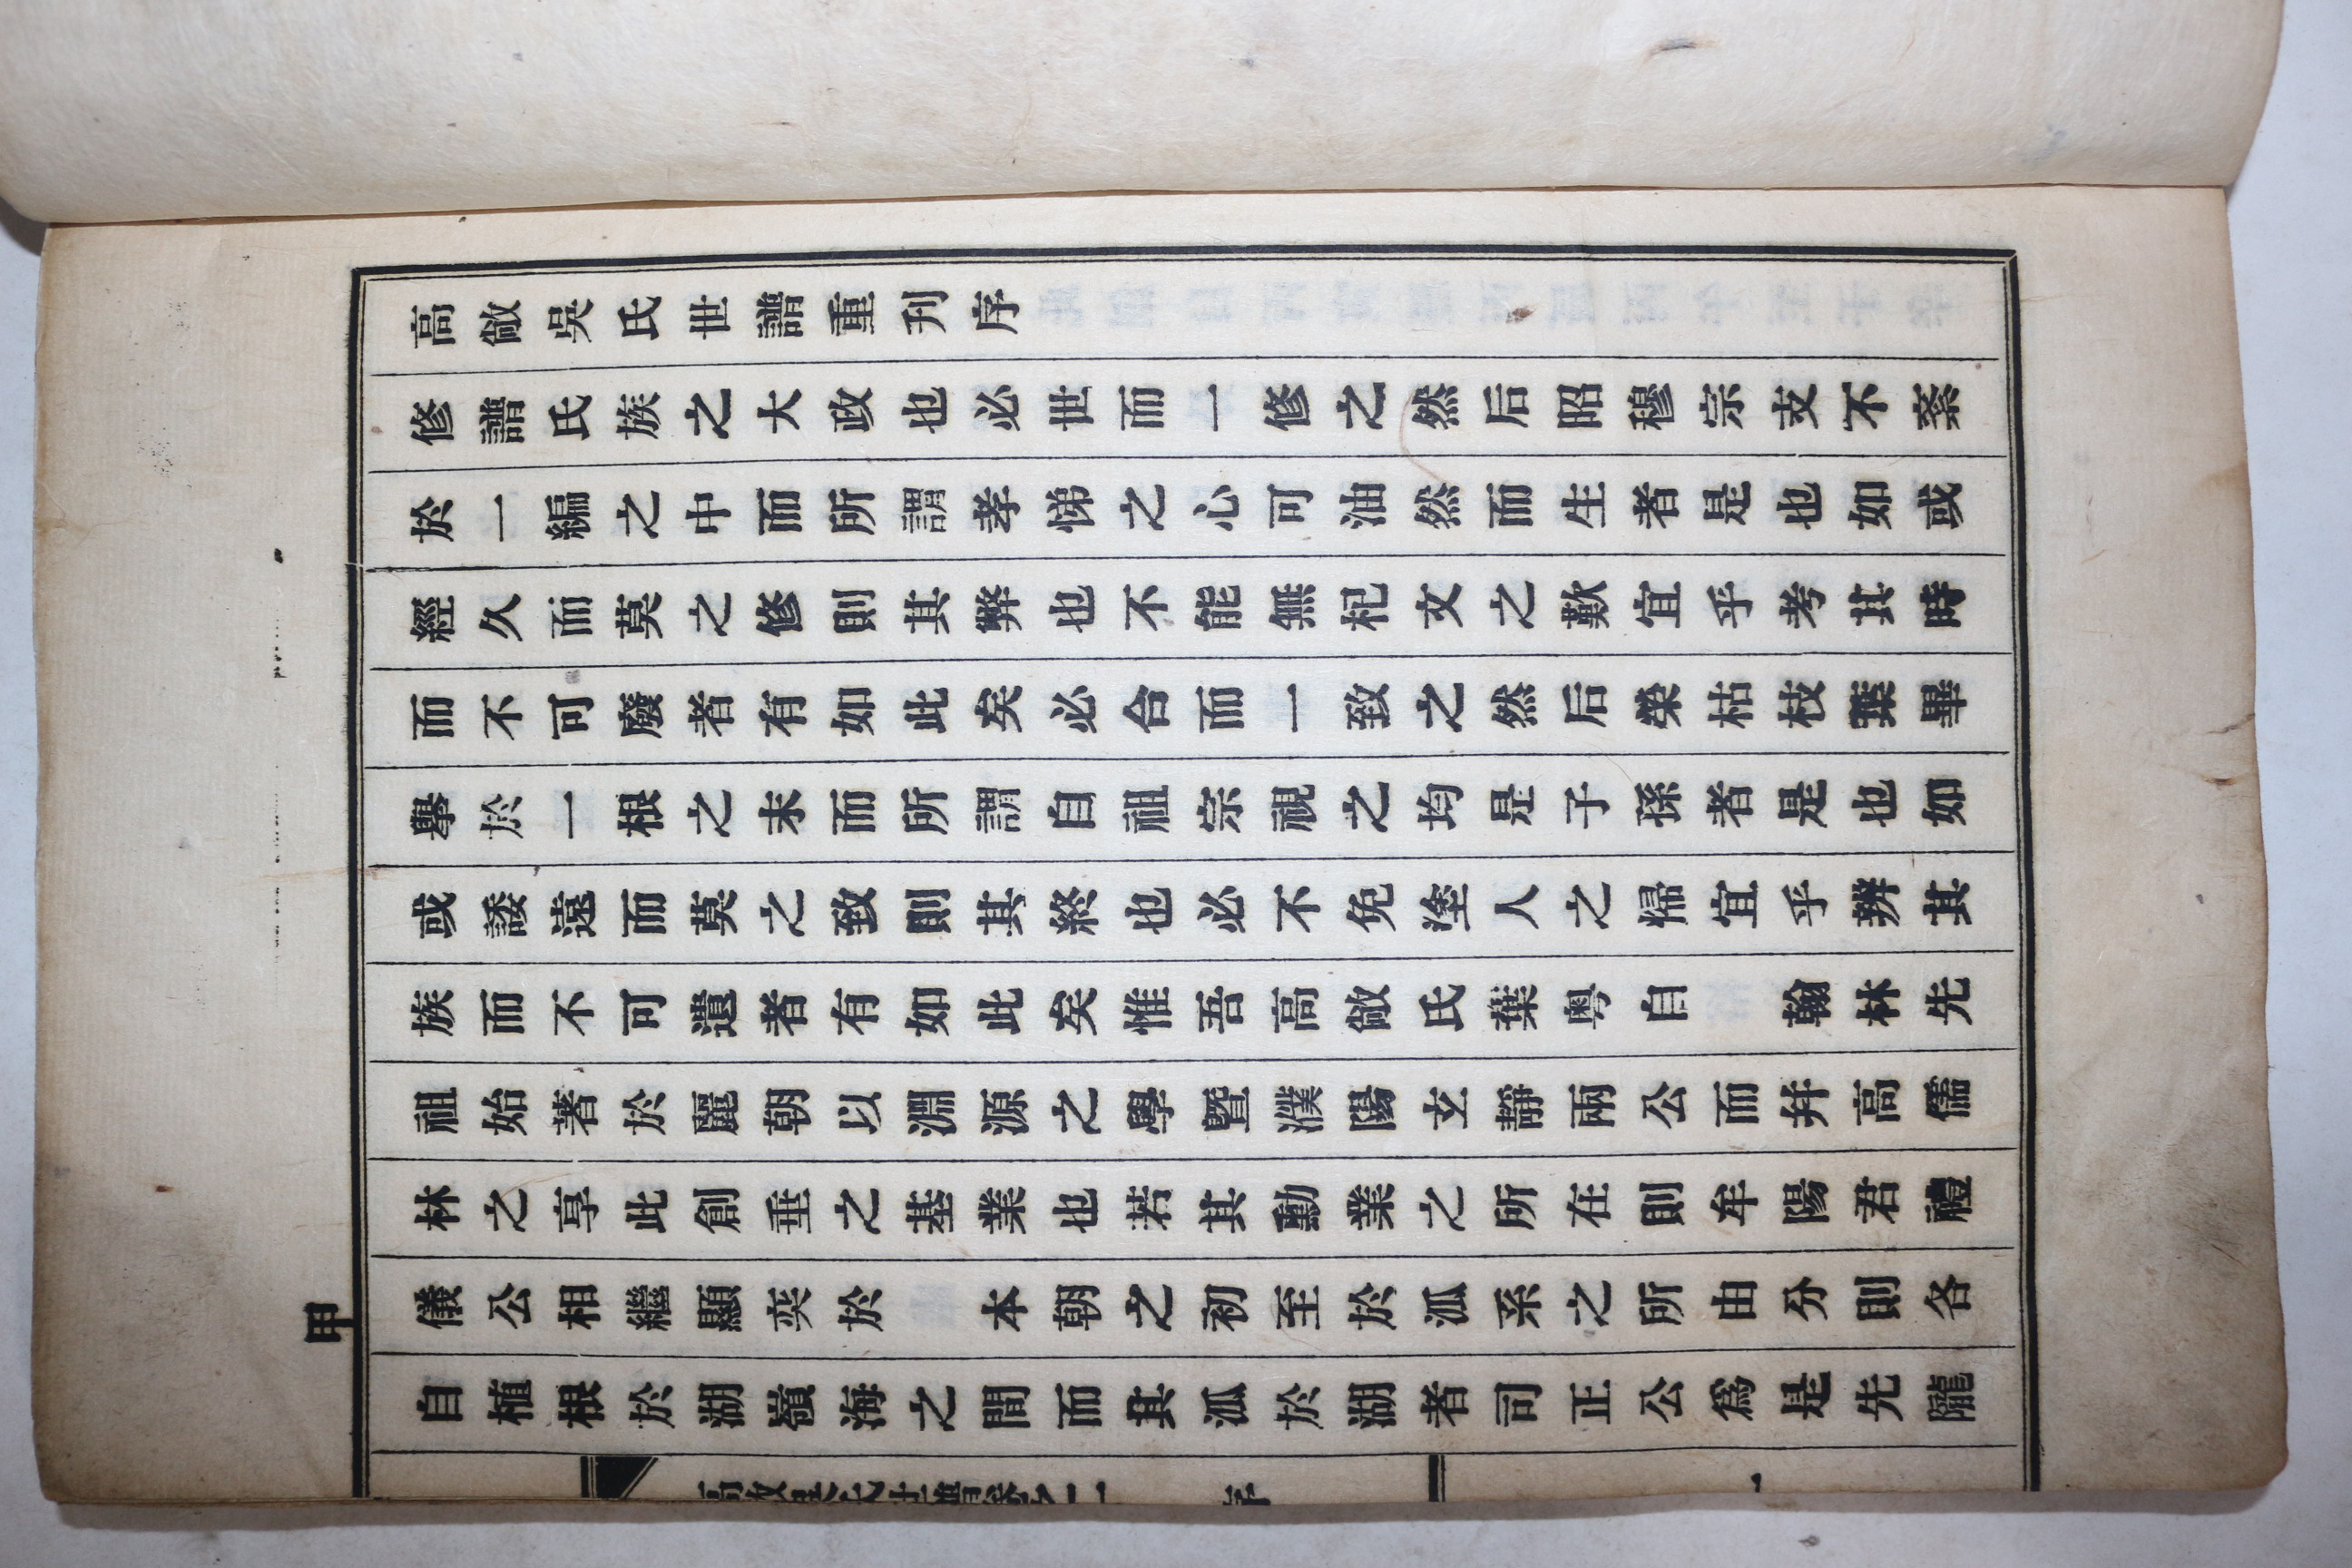 高敞吳氏世譜重刊序
修譜氏族之大政也必世而一修之然后昭穆宗支不紊
於一編之中而所謂孝悌之心可油然而生者是也如或
經久而莫之修則其弊也不能無杞文之歎宜乎考其時
而不可廢者有如此矣必合而一致之然后榮枯枝葉畢
擧於一根之末而所謂自祖宗視之均是子孫者是也如
或諉遠而莫之致則其終也必不免塗人之歸宜乎辨其
族而不可遺者有如此矣惟吾高敞氏葉粤自 翰林先
祖始著於麗朝以淵源之學曁濮陽玄靜兩公而幷高儒
林之享此創垂之基業也若其勳業之所在則牟陽君禮
儀公相繼顯奕於 本朝之初至於派系之所由分則各
自植根於湖嶺海之間而其派於湖者司正公爲是先隴
高敞吳氏世譜卷之一 序 一
甲